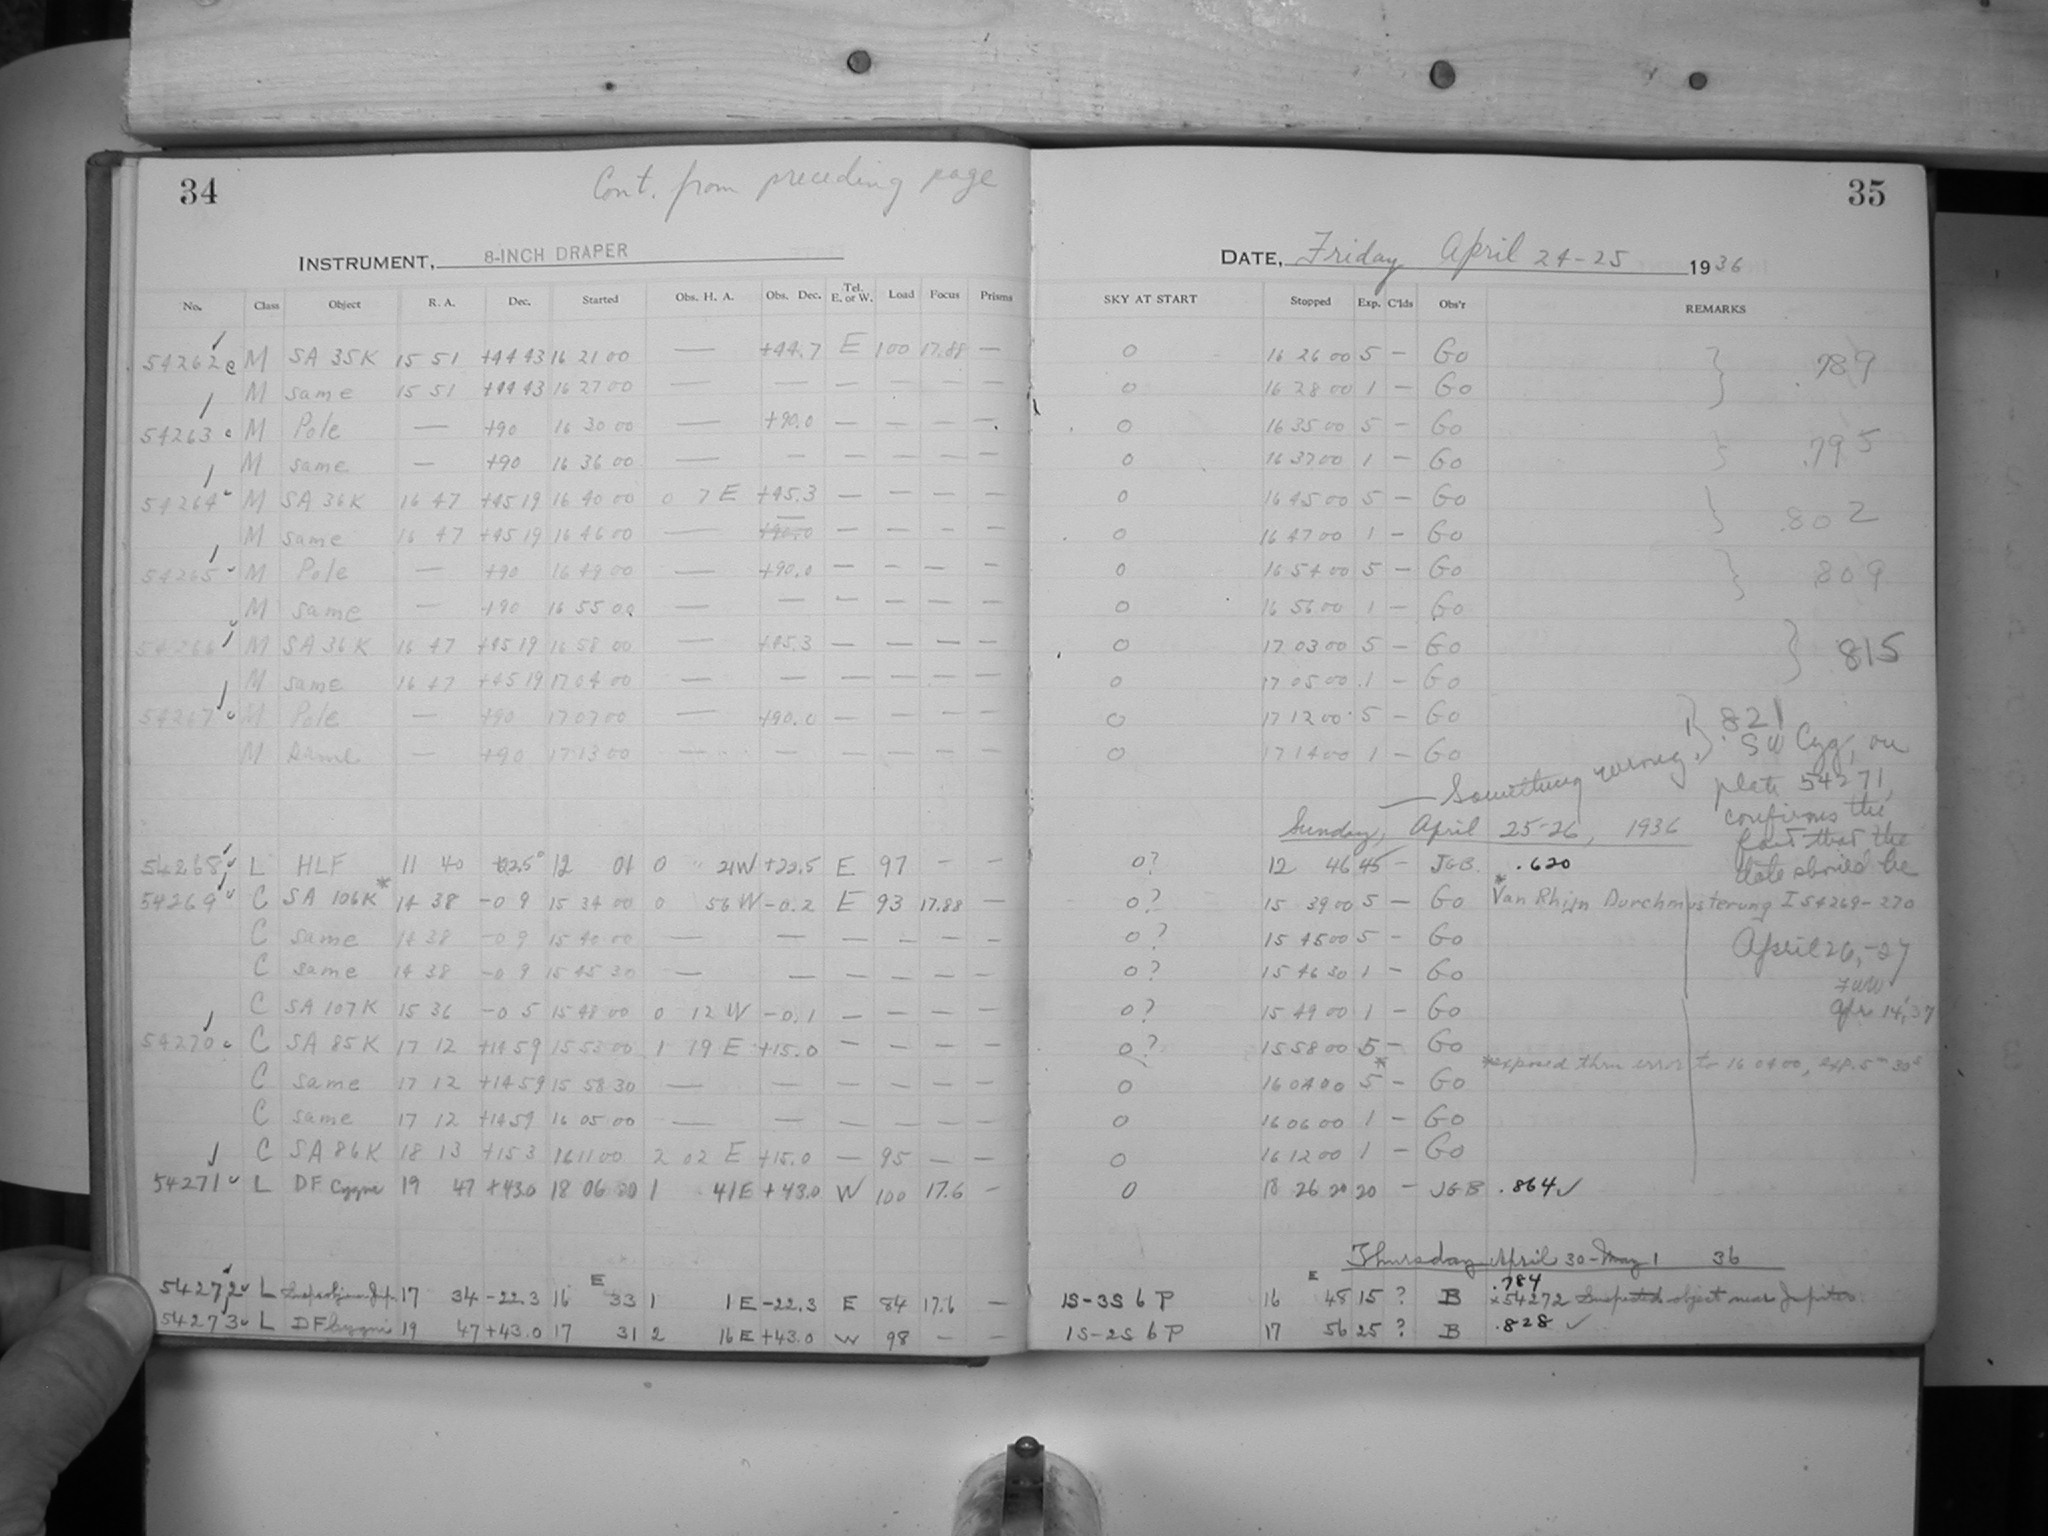 34
Cont. from preceding page
35
INSTRUMENT, 8-INCH DRAPER
DATE, Friday April 24-25 1936
No. Class Object R. A. Dec. Started Obs. H. A. Obs. Dec. Tel. E. or W. Load Focus Prisms SKY AT START Stopped Exp. C'lds Obs'r REMARKS
54262 M SA 35K 15 51 +44 43 16 21 00 — +44.7 E 100 17.88 — 0 16 26 00 5 — Go } .789
M same 15 51 +44 43 16 27 00 — — — — — — 0 16 28 00 1 — Go
54263 M Pole — +90 16 30 00 — +90.0 — — — — 0 16 35 00 5 — Go } .795
M same — +90 16 36 00 — — — — — — 0 16 37 00 1 — Go
54264 M SA 36K 16 47 +45 19 16 40 00 0 7 E +45.3 — — — — 0 16 45 00 5 — Go } .802
M same 16 47 +45 19 16 46 00 — +90.0 — — — — 0 16 47 00 1 — Go
54265 M Pole — +90 16 49 00 — +90.0 — — — — 0 16 54 00 5 — Go } 809
M same — +90 16 55 00 — — — — — — 0 16 56 00 1 — Go
54266 M SA 36K 16 47 +45 19 16 58 00 — +45.3 — — — — 0 17 03 00 5 — Go } 815
M same 16 47 +45 19 17 04 00 — — — — — — 0 17 05 00 1 — Go
54267 M Pole — +90 17 07 00 — +90.0 — — — — 0 17 12 00 5 — Go } .821
M same — +90 17 13 00 — — — — — — 0 17 14 00 1 — Go
— Something wrong.
SW Cyg, on
plate 54271,
confirms the
fact that the
date should be
April 26,-27
FWW
Apr 14, 37
Sunday, April 25-26, 1936
54268 L HLF 11 40 12 01 0 21W +22.5 E 97 — — 0? 12 46 45 — JGB. .620
54269 C SA 106K* 14 38 -0 9 15 34 00 0 56 W -0.2 E 93 17.88 — 0? 15 39 00 5 — Go *Van Rhijn Durchmusterung I 54269-270
C same 14 38 -0 9 15 40 00 — — — — — — 0? 15 45 00 5 — Go
C same 14 38 -0 9 15 45 30 — — — — — — 0? 15 46 30 1 — Go
C SA 107K 15 36 -0 5 15 48 00 0 12 W -0.1 — — — — 0? 15 49 00 1 — Go
54270 C SA 85K 17 12 +14 59 15 53 00 1 19 E +15.0 — — — — 0? 15 58 00 5 — Go
C same 17 12 +14 59 15 58 30 — — — — — — 0 16 04 00 5* — Go *exposed thru error to 16 04 00, exp. 5m 30s
C same 17 12 +14 59 16 05 00 — — — — — — 0 16 06 00 1 — Go
C SA 86K 18 13 +15 3 16 11 00 2 02 E +15.0 — 95 — — 0 16 12 00 1 — Go
54271 L DF Cygni 19 47 +43.0 18 06 20 1 41E +43.0 W 100 17.6 — 0 18 26 20 20 — JGB .864 ✓
Thursday April 30-May 1 36
54272 L 17 34 -22.3 16 E 33 1 1 E -22.3 E 84 17.6 — 1S-3S 6 P 16 E 48 15 ? B .784 x54272 Suspected object near Jupiter
54273 L DF Cygni 19 47 +43.0 17 31 2 16 E +43.0 W 98 — — 1S-2S 6 P 17 56 25 ? B .828 ✓